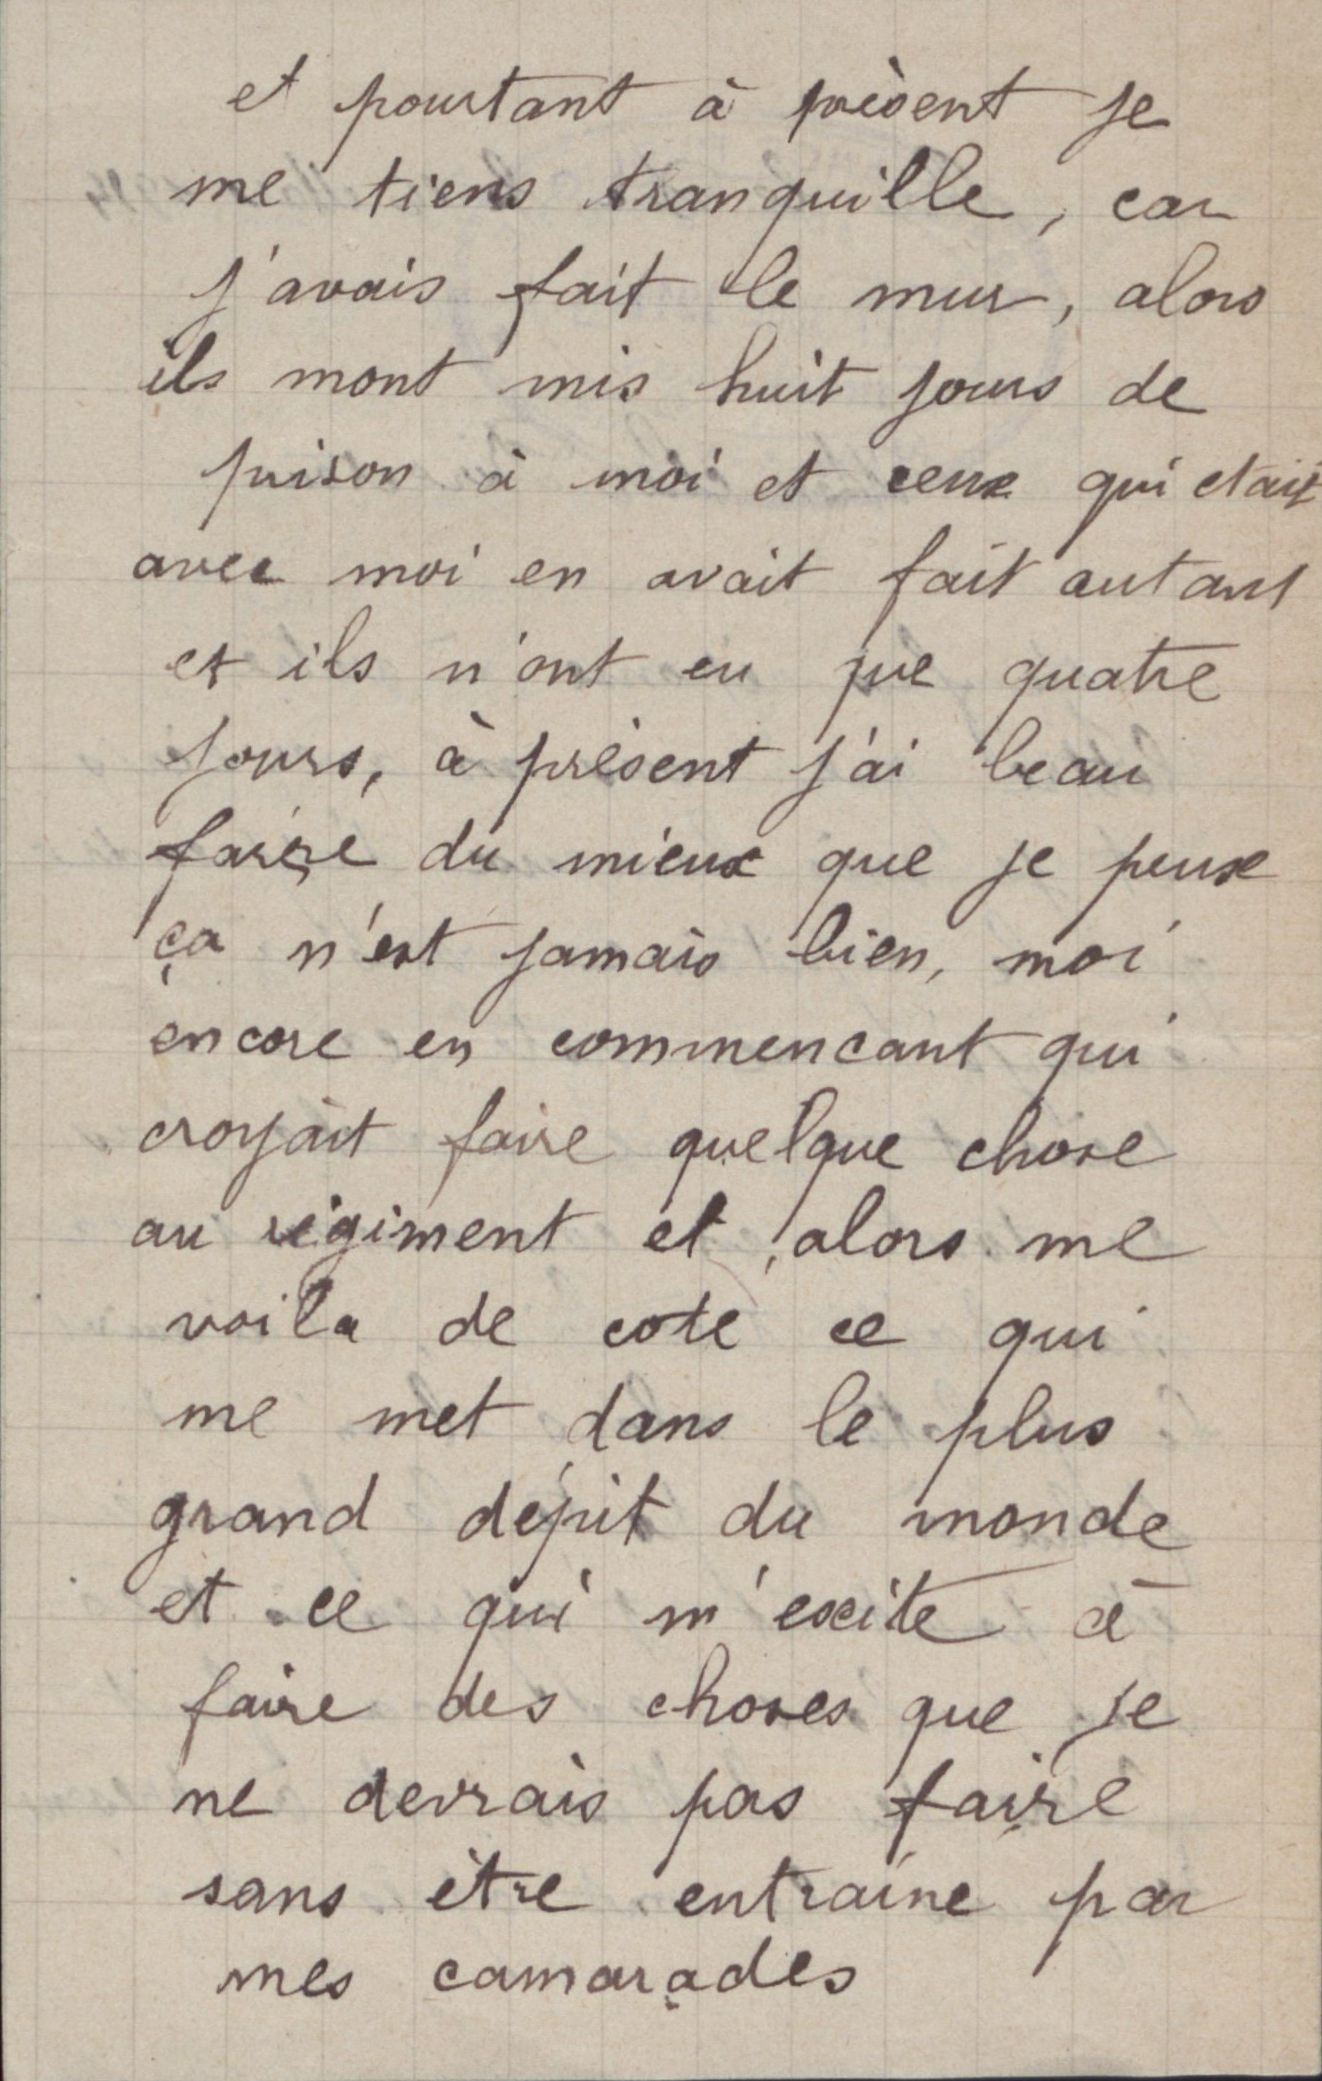 et pourtant à présent je
me tiens tranquille, car
j'avais fait le mur, alors
ils mont mis huit jours de
prison à moi et ceux qui etait
avec moi en avait fait autant
et ils n'ont eu que quatre
jours, à présent j'ai beau
faire du mieux que je peux
ça n'est jamais bien, moi
encore en commencant qui
croyait faire quelque chose
au régiment et alors me
voila de cote ce qui
me met dans le plus
grand dépit du monde
et ce qui m'excite à
faire des choses que je
ne devrais pas faire
sans être entrainé par
mes camarades